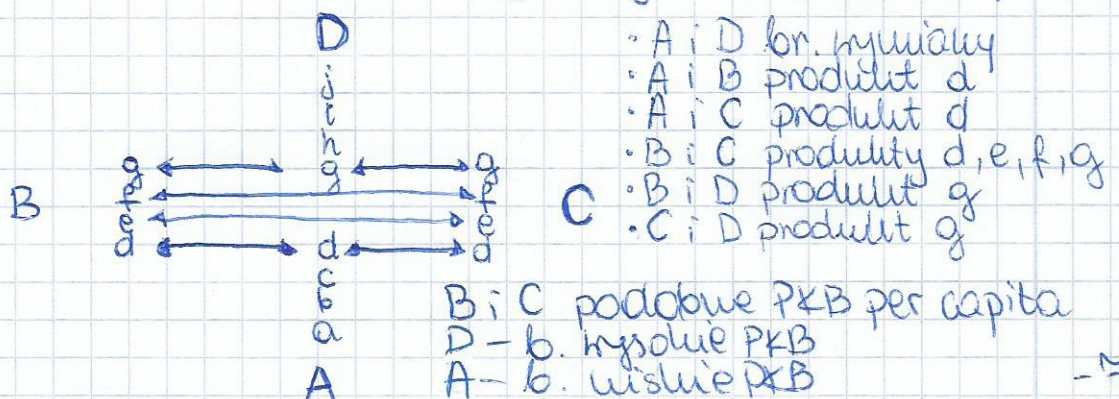 D
j
i
h
g ↔ g ↔ g
f ↔ f
B e ↔ e C
d ↔ d ↔ d
c
b
a
A
· A i D br. wymiany
· A i B produkt d
· A i C produkt d
· B i C produkty d, e, f, g
· B i D produkt g
· C i D produkt g
B i C podobne PKB per capita
D - b. wysokie PKB
A - b. niskie PKB